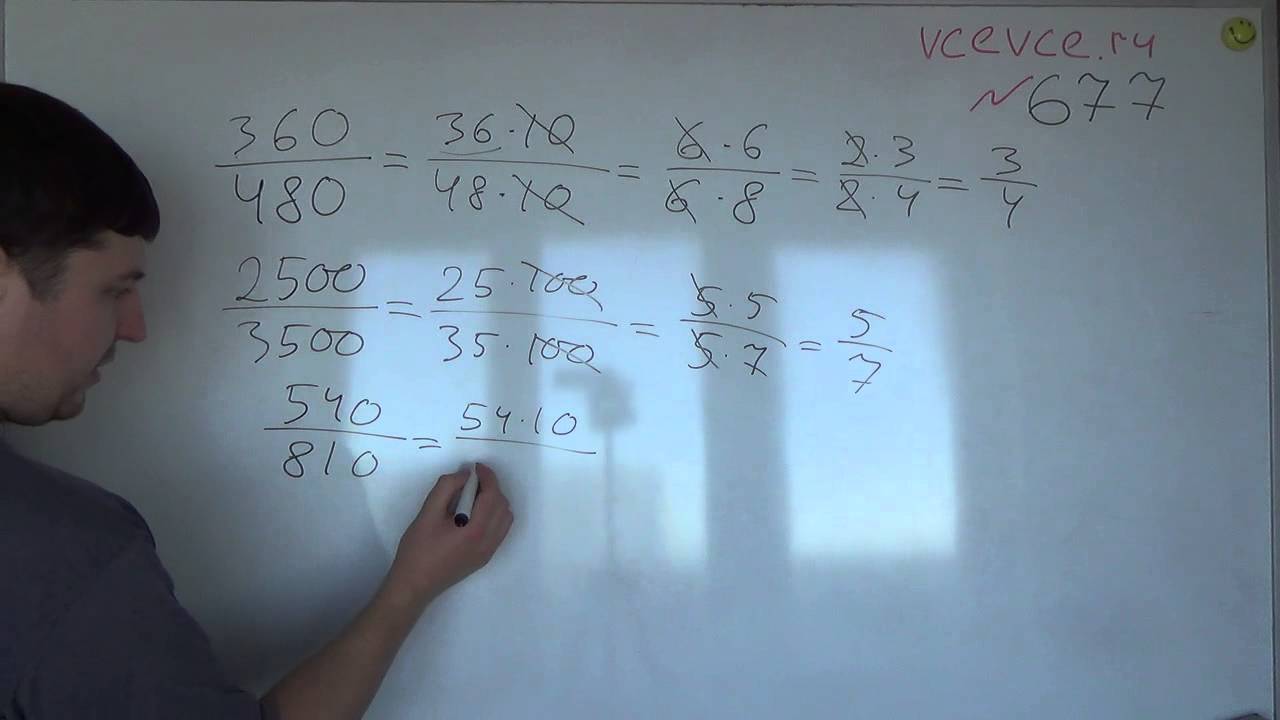 vcevce.ru
№677
360/480 = 36·10/48·10 = 6·6/6·8 = 2·3/2·4 = 3/4
2500/3500 = 25·100/35·100 = 5·5/5·7 = 5/7
540/810 = 54·10